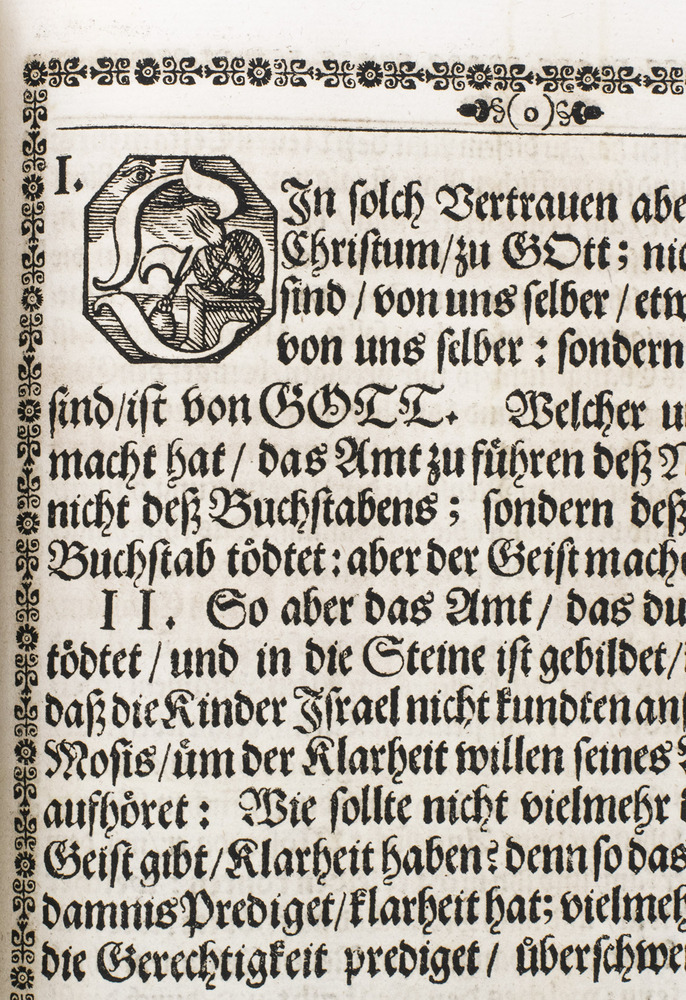 (o)
I. EIn solch Vertrauen abe
Christum/zu GOtt; nic
sind / von uns selber / etw
von uns selber : sondern
sind/ist von GOTT. Welcher u
macht hat / das Amt zu führen deß N
nicht deß Buchstabens ; sondern deß
Buchstab tödtet : aber der Geist mach
II. So aber das Amt / das du
tödtet / und in die Steine ist gebildet/
daß die Kinder Israel nicht kundten an
Mosis/üm der Klarheit willen seines
aufhöret : Wie sollte nicht vielmehr
Geist gibt/Klarheit haben? denn so das
damnis Prediget/klarheit hat; vielmeh
die Gerechtigkeit prediget / überschwe